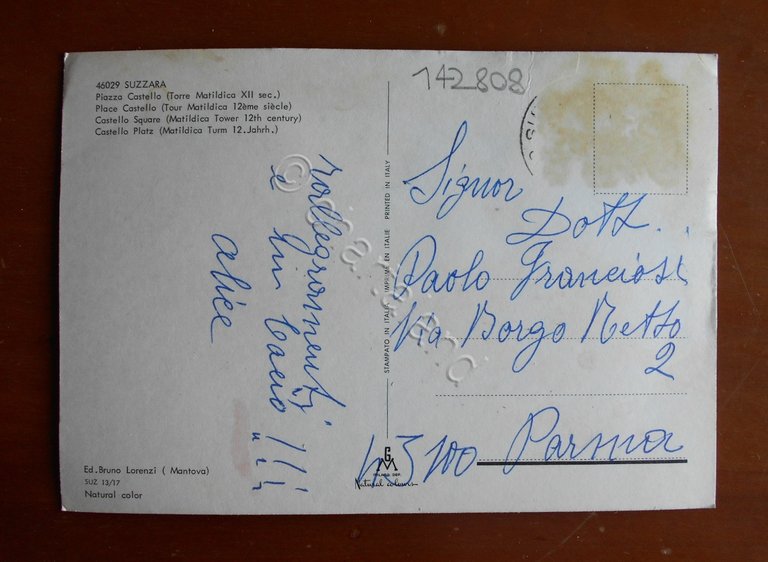 142808
46029 SUZZARA
Piazza Castello (Torre Matildica XII sec.)
Place Castello (Tour Matildica 12ème siècle)
Castello Square (Matildica Tower 12th century)
Castello Platz (Matildica Turm 12. Jahrh.)
rallegramenti
e un bacio !!!
alice
STAMPATO IN ITALIA IMPRIMÉ EN ITALIE PRINTED IN ITALY
Signor
Dott.
Paolo Franciosi
Via Borgo Retto
2
43100 Parma
Ed. Bruno Lorenzi ( Mantova)
SUZ 13/17
Natural color
GM
Natural colours